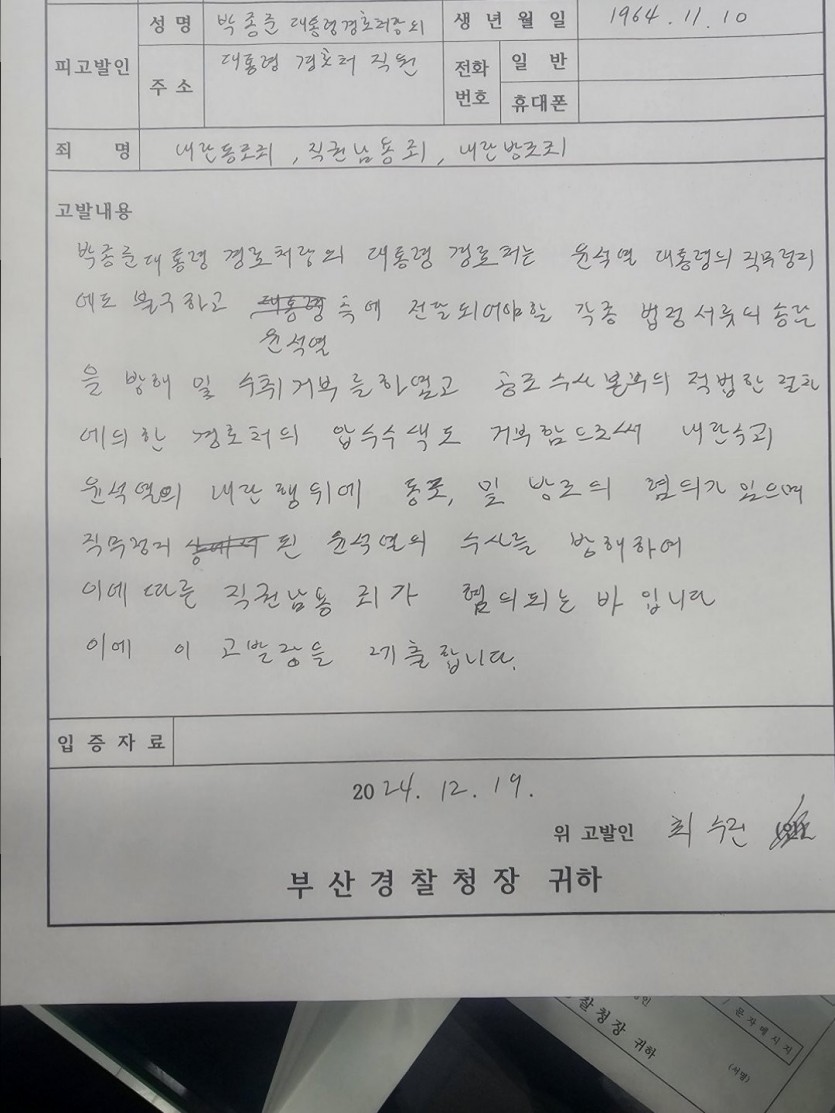 피고발인 성 명 박종준 대통령경호처장외 생 년 월 일 1964. 11. 10
주 소 대통령 경호처 직원 전화번호 일 반
휴대폰
죄 명 내란동조죄, 직권남용죄, 내란방조죄
고발내용
박종준대통령 경호처장외 대통령 경호처는 윤석열 대통령의 직무정지
에도 불구하고 대통령 측에 전달되어야할 각종 법정 서류의 송달
윤석열
을 방해 및 수취거부를하였고 공조수사본부의 적법한 절차
에의한 경호처의 압수수색도 거부함으로써 내란수괴
윤석열의 내란행위에 동조, 및 방조의 혐의가 있으며
직무정지 상태서 된 윤석열의 수사를 방해하여
이에 따른 직권남용 죄가 혐의되는 바 입니다
이에 이 고발장을 제출합니다.
입 증 자 료
2024. 12. 19.
위 고발인 최수건
부 산 경 찰 청 장 귀하
찰 청 장 귀하
/ 문자메시지
(서명)